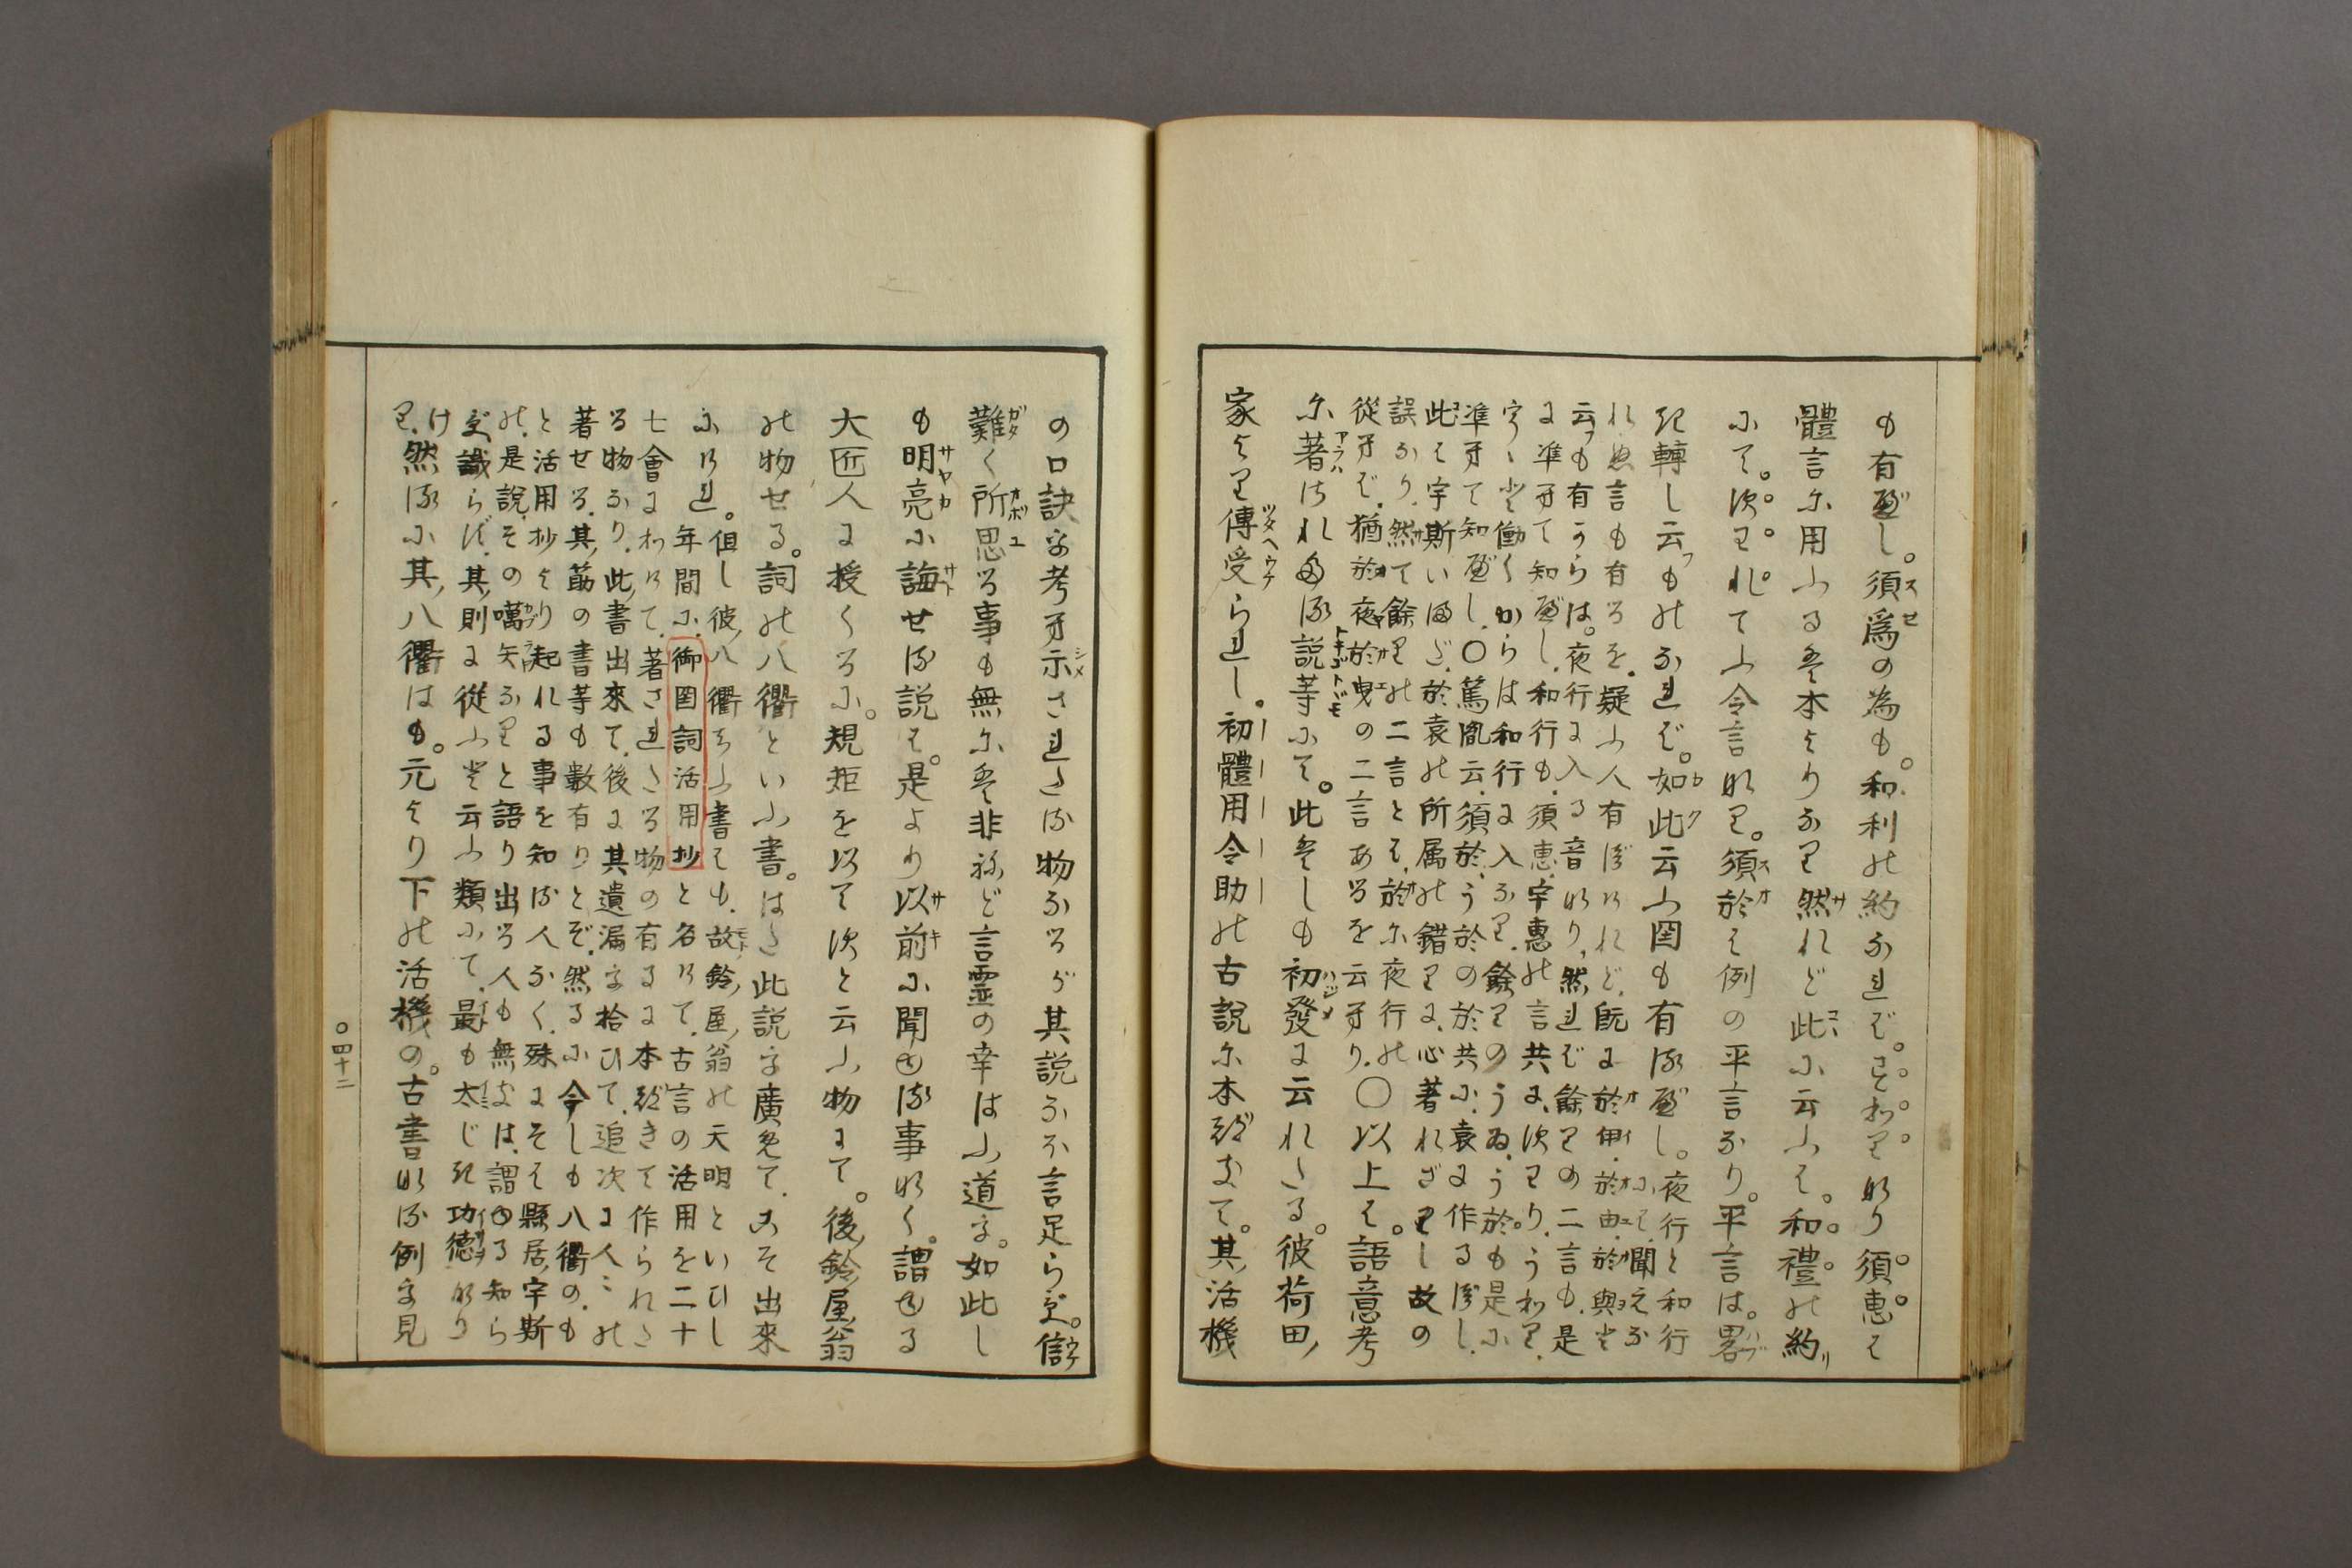 も有べし。須爲の為も。和利の約なれば。すわりなり須恵は
體言に用ふる是本よりなり然れど此に云ふは。和禮の約
にて。次りれてふ令言なり。須於は例の平言なり。平言は。畧
き轉し云ふものなれば。如此云ふ圀も有るべし。夜行と和行
にて聞えな
れぬ言も有るを、疑ふ人有べけれど、既に於伊・於由・於與と
云も有からは。夜行に入る音なり、然れば餘りの二言も、是
に準へて知べし、和行も、須恵、宇恵の言共に、次わり、うわり、
準へて知べし、〇篤胤云、須於、う於の於共に、袁に作るべし、
此は宇斯いまだ、於袁の所属の錯りに、心著れざりし故の
誤なり、然て餘りの二言とは、於に夜行の
從へば、猶於夜於曳の二言あるを云へり、〇以上は。語意考
に著はれたる説等にて。此是しも初發に云れたる。彼荷田
家より傳受られし。初體用令助の古説に本づきて。其活機
の口訣を考へ示されたる物なるが其説なほ言足らず。信
難く所思る事も無に是非ねど言霊の幸はふ道を。如此し
も明亮に誨せる説は。是より以前に聞る事なく。謂る
大匠人に授くるに。規矩を以て次と云ふ物にて。後鈴屋翁
の物せる。詞の八衢といふ書。はた此説を廣めて、こそ出來
にけれ。但し彼八衢ちふ書はも、故鈴屋翁の天明といひし
年間に、御圀詞活用抄と名けて、古言の活用を二十
七會にわけて、著されたる物の有るに本づきて作られた
る物なり、此書出來て、後に其遺漏を拾ひて、追次に人々の
著せる、其筋の書等も數有りとぞ、然るに今しも八衢の、も
と活用抄より起れる事を知る人なく、殊にそは縣居宇斯
の、是説、その嚆矢なりと語り出る人も無きは、謂る知ら
ず識らず、其則に從ふと云ふ類にて、最も太じき功德なり
け
り、然るに其八衢はも。元より下の活機の。古書なる例を見
〇四十二